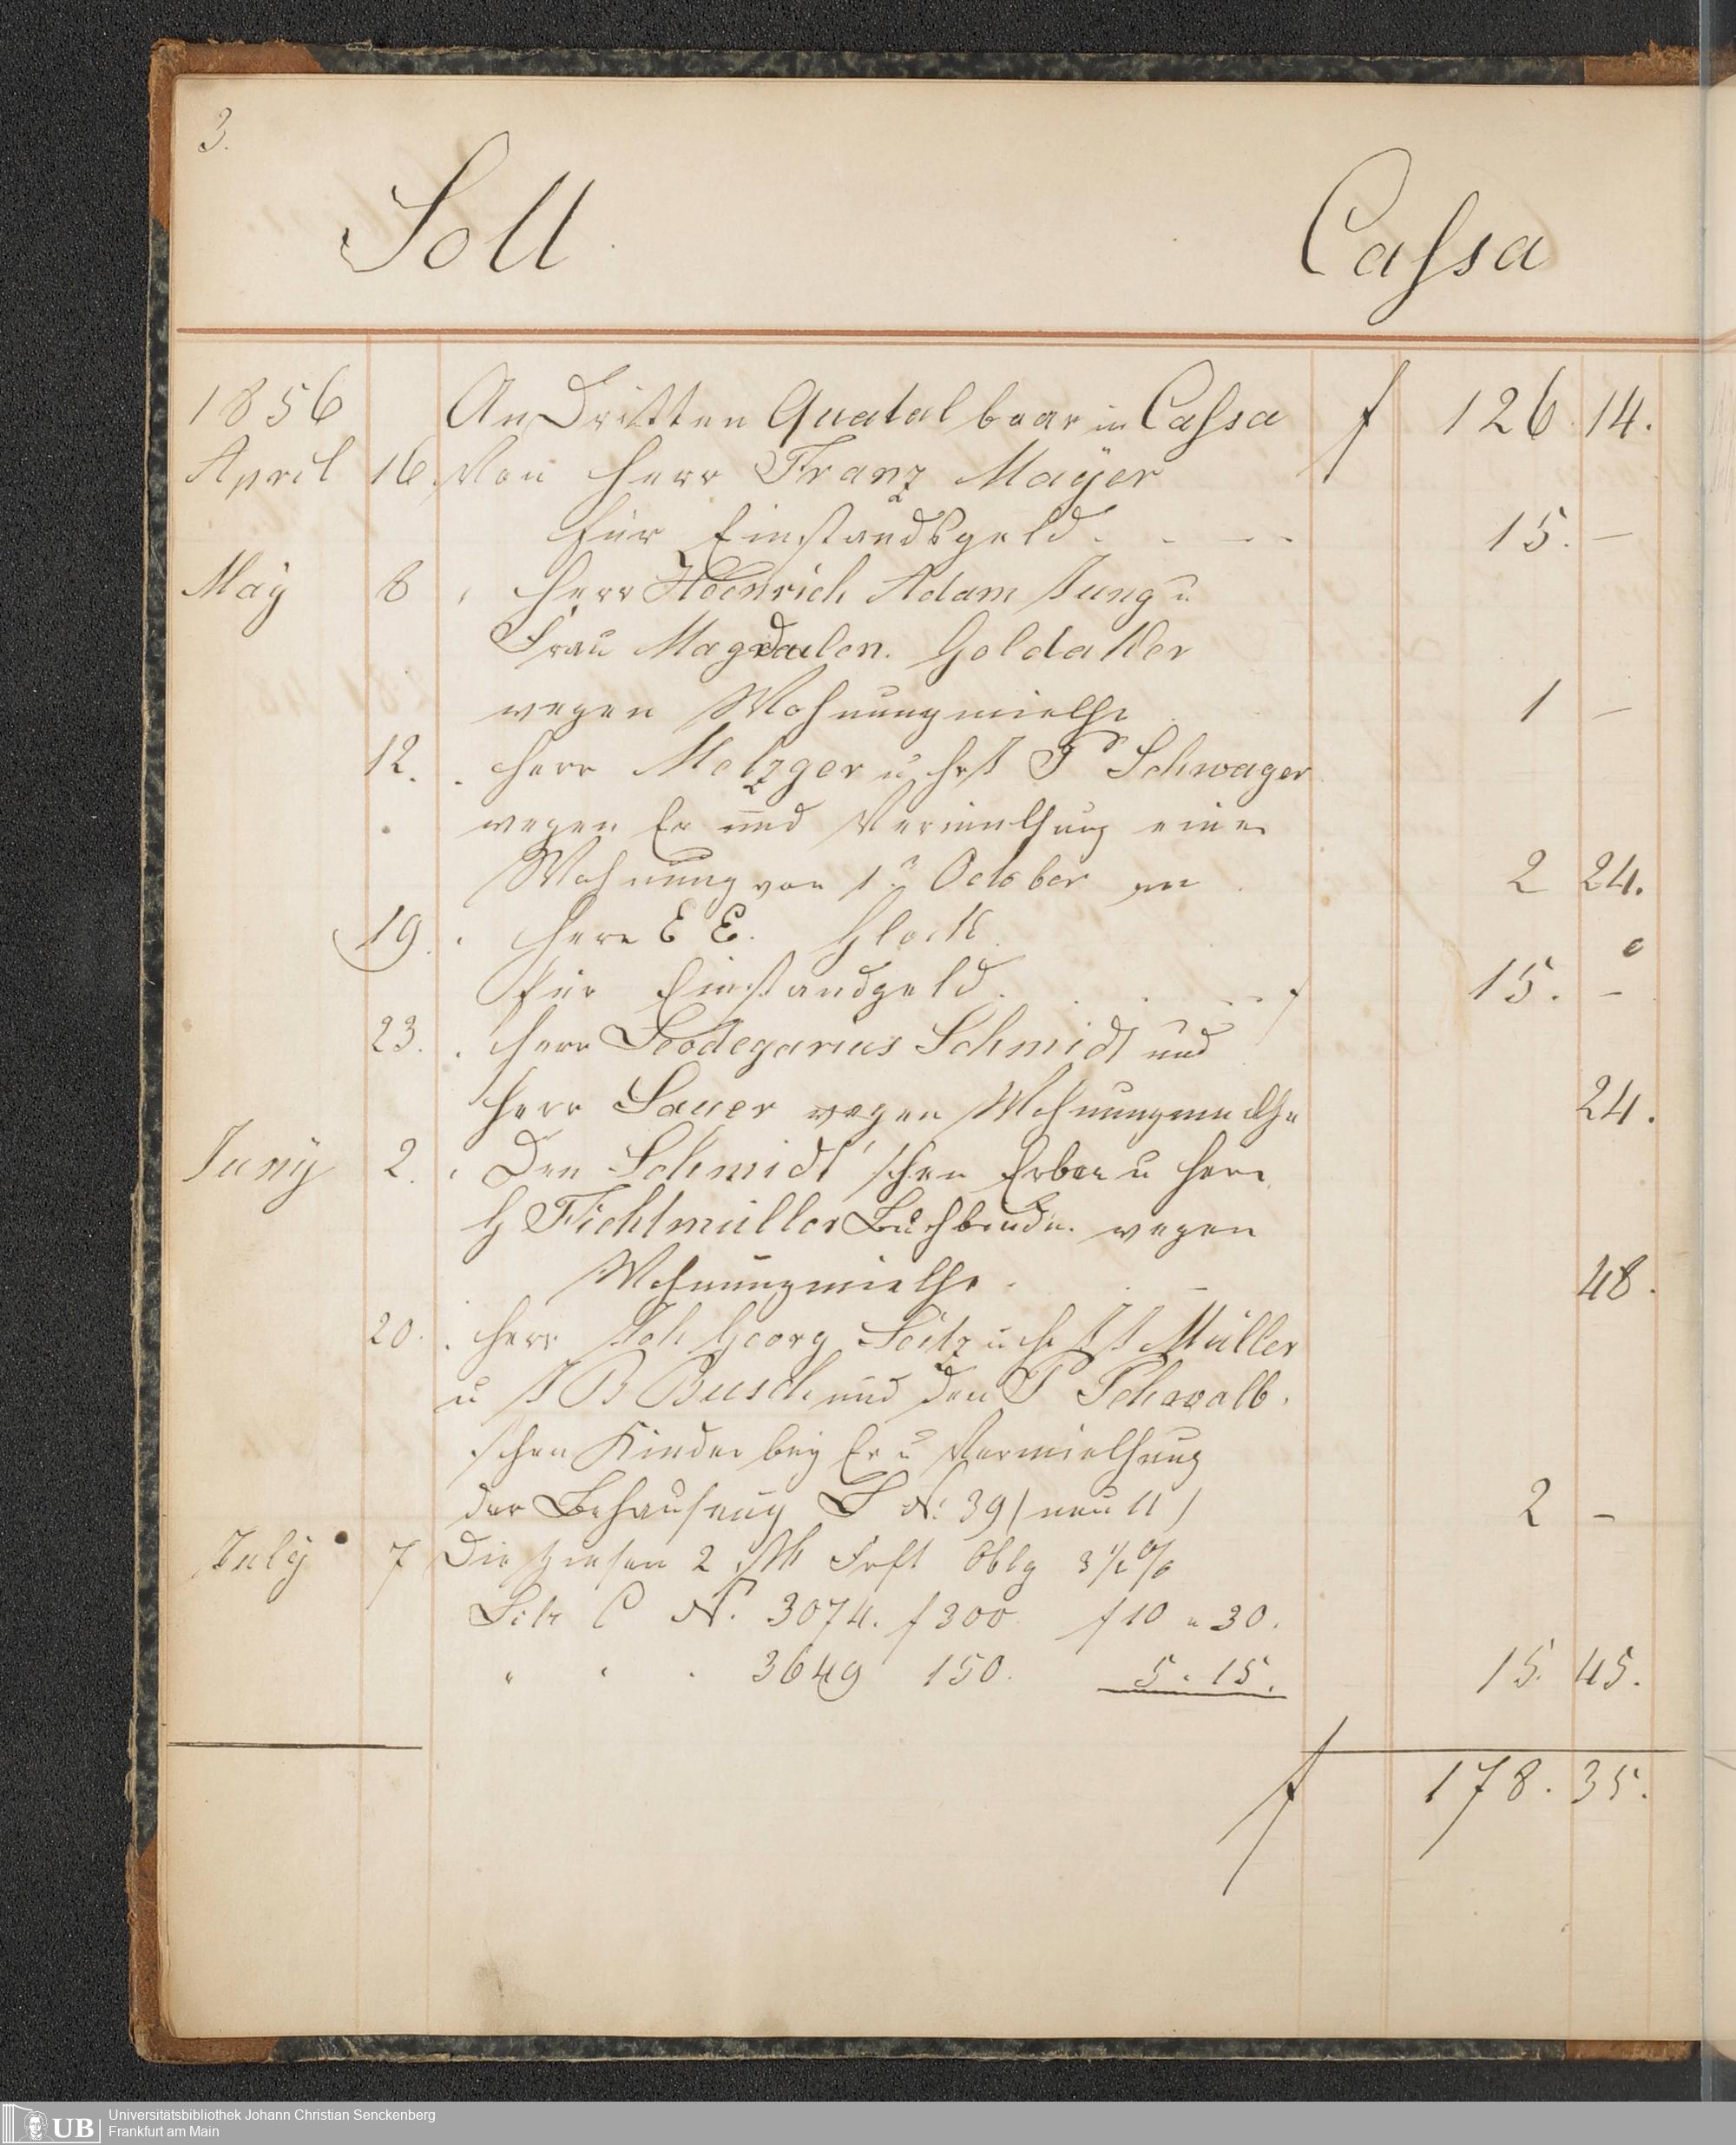 3.
Soll Cassa
1856 An Dritten Quatal baar in Cassa f 126. 14.
April 16 Von Herr Franz Mayer
für Einstandsgeld. 15. —
May 6 " Herr Heinrich Adam Jung u
Frau Magdalen.
wegen Wohnungmiethe 1 —
12. " Herr Metzger u Hr J P Schwager
wegen Er und Vermiethung einer
Wohnung von 1r October an 2 24.
19. " Herr E E. Glock
für Einstandgeld. 15. —
23. " Herr Leodegarius Schmidt und
Herr Sauer wegen Wohnungmiethe 24.
Juny 2. " Den Schmidt'schen Erben u Herr
G Fichtmüller Buchbinder wegen
Wohnungmiethe 48.
20. " Herr Joh Georg Seitz u H J J Müller
u J B Busch und den P Schwalb.
schen Kinder bey Er u Vermiethung
der Behausung L No. 39 (neu 11) 2 —
July 7 Die Zinsen 2 Stk Frft Oblg 3 1/2 %
Litr C No. 3074. f 300 f 10 " 30.
" " " 3649 150. 5. 15. 15. 45.
f 178. 35.
UB Universitätsbibliothek Johann Christian Senckenberg
Frankfurt am Main